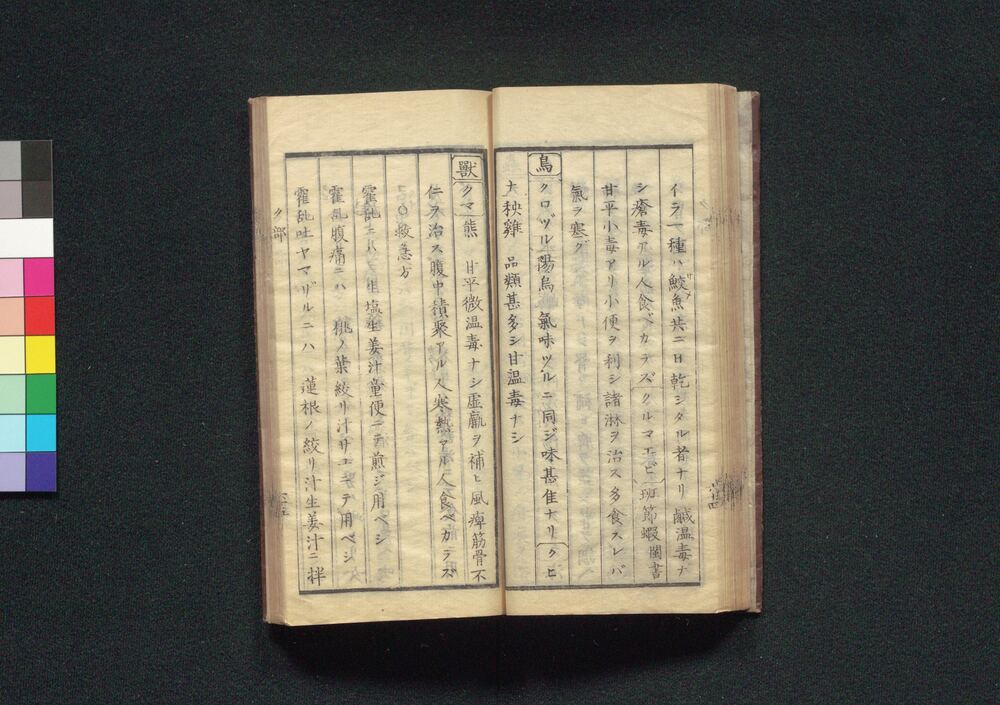 イラ一種ハ鮫魚共ニ日乾シタル者ナリ鹹温毒ナ
シ瘡毒アル人食ベカラズクルマエビ班節蝦閩書
甘平小毒アリ小便ヲ利シ諸淋ヲ治ス多食スレバ
氣ヲ塞グ
鳥クロヅル陽烏氣味ツルニ同ジ味甚隹ナリクヒ
ナ秧雞 品類甚多シ甘温毒ナシ
獸クマ熊 甘平微温毒ナシ虚羸ヲ補ヒ風痺筋骨不
仁ヲ治ス腹中積聚アル人寒熱アル人食ベカラズ
○救急方
霍乱ニハ 生塩生姜汁童便ニテ煎ジ用ベシ
霍乱腹痛ニハ 桃ノ葉絞リ汁 テ用ベシ
霍乱吐ヤマザルニハ 蓮根ノ絞リ汁生姜汁ニ拌
ク部